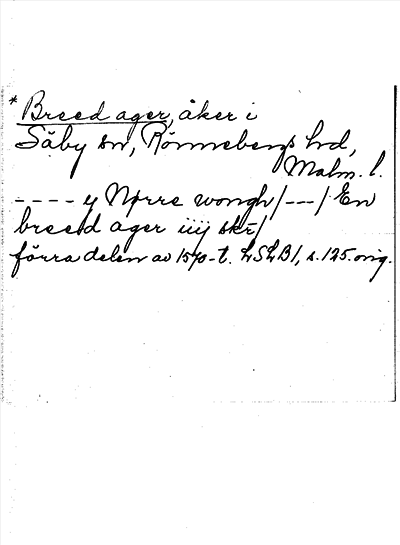 * Breed ager, åker i
Säby sn, Rönnebergs hd,
Malm. l.
---- y Nørre wongh/---/ En
breed ager iiij skr/
förra delen av 1570-t. LSLB1, s. 125. orig.